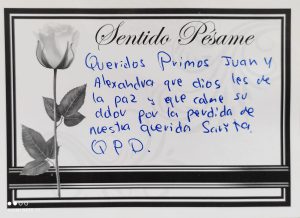 Sentido Pésame
Queridos Primos Juan y
Alexandra que dios les de
la paz y que calme su
dolor por la perdida de
nuestra querida Sarita.
QPD.